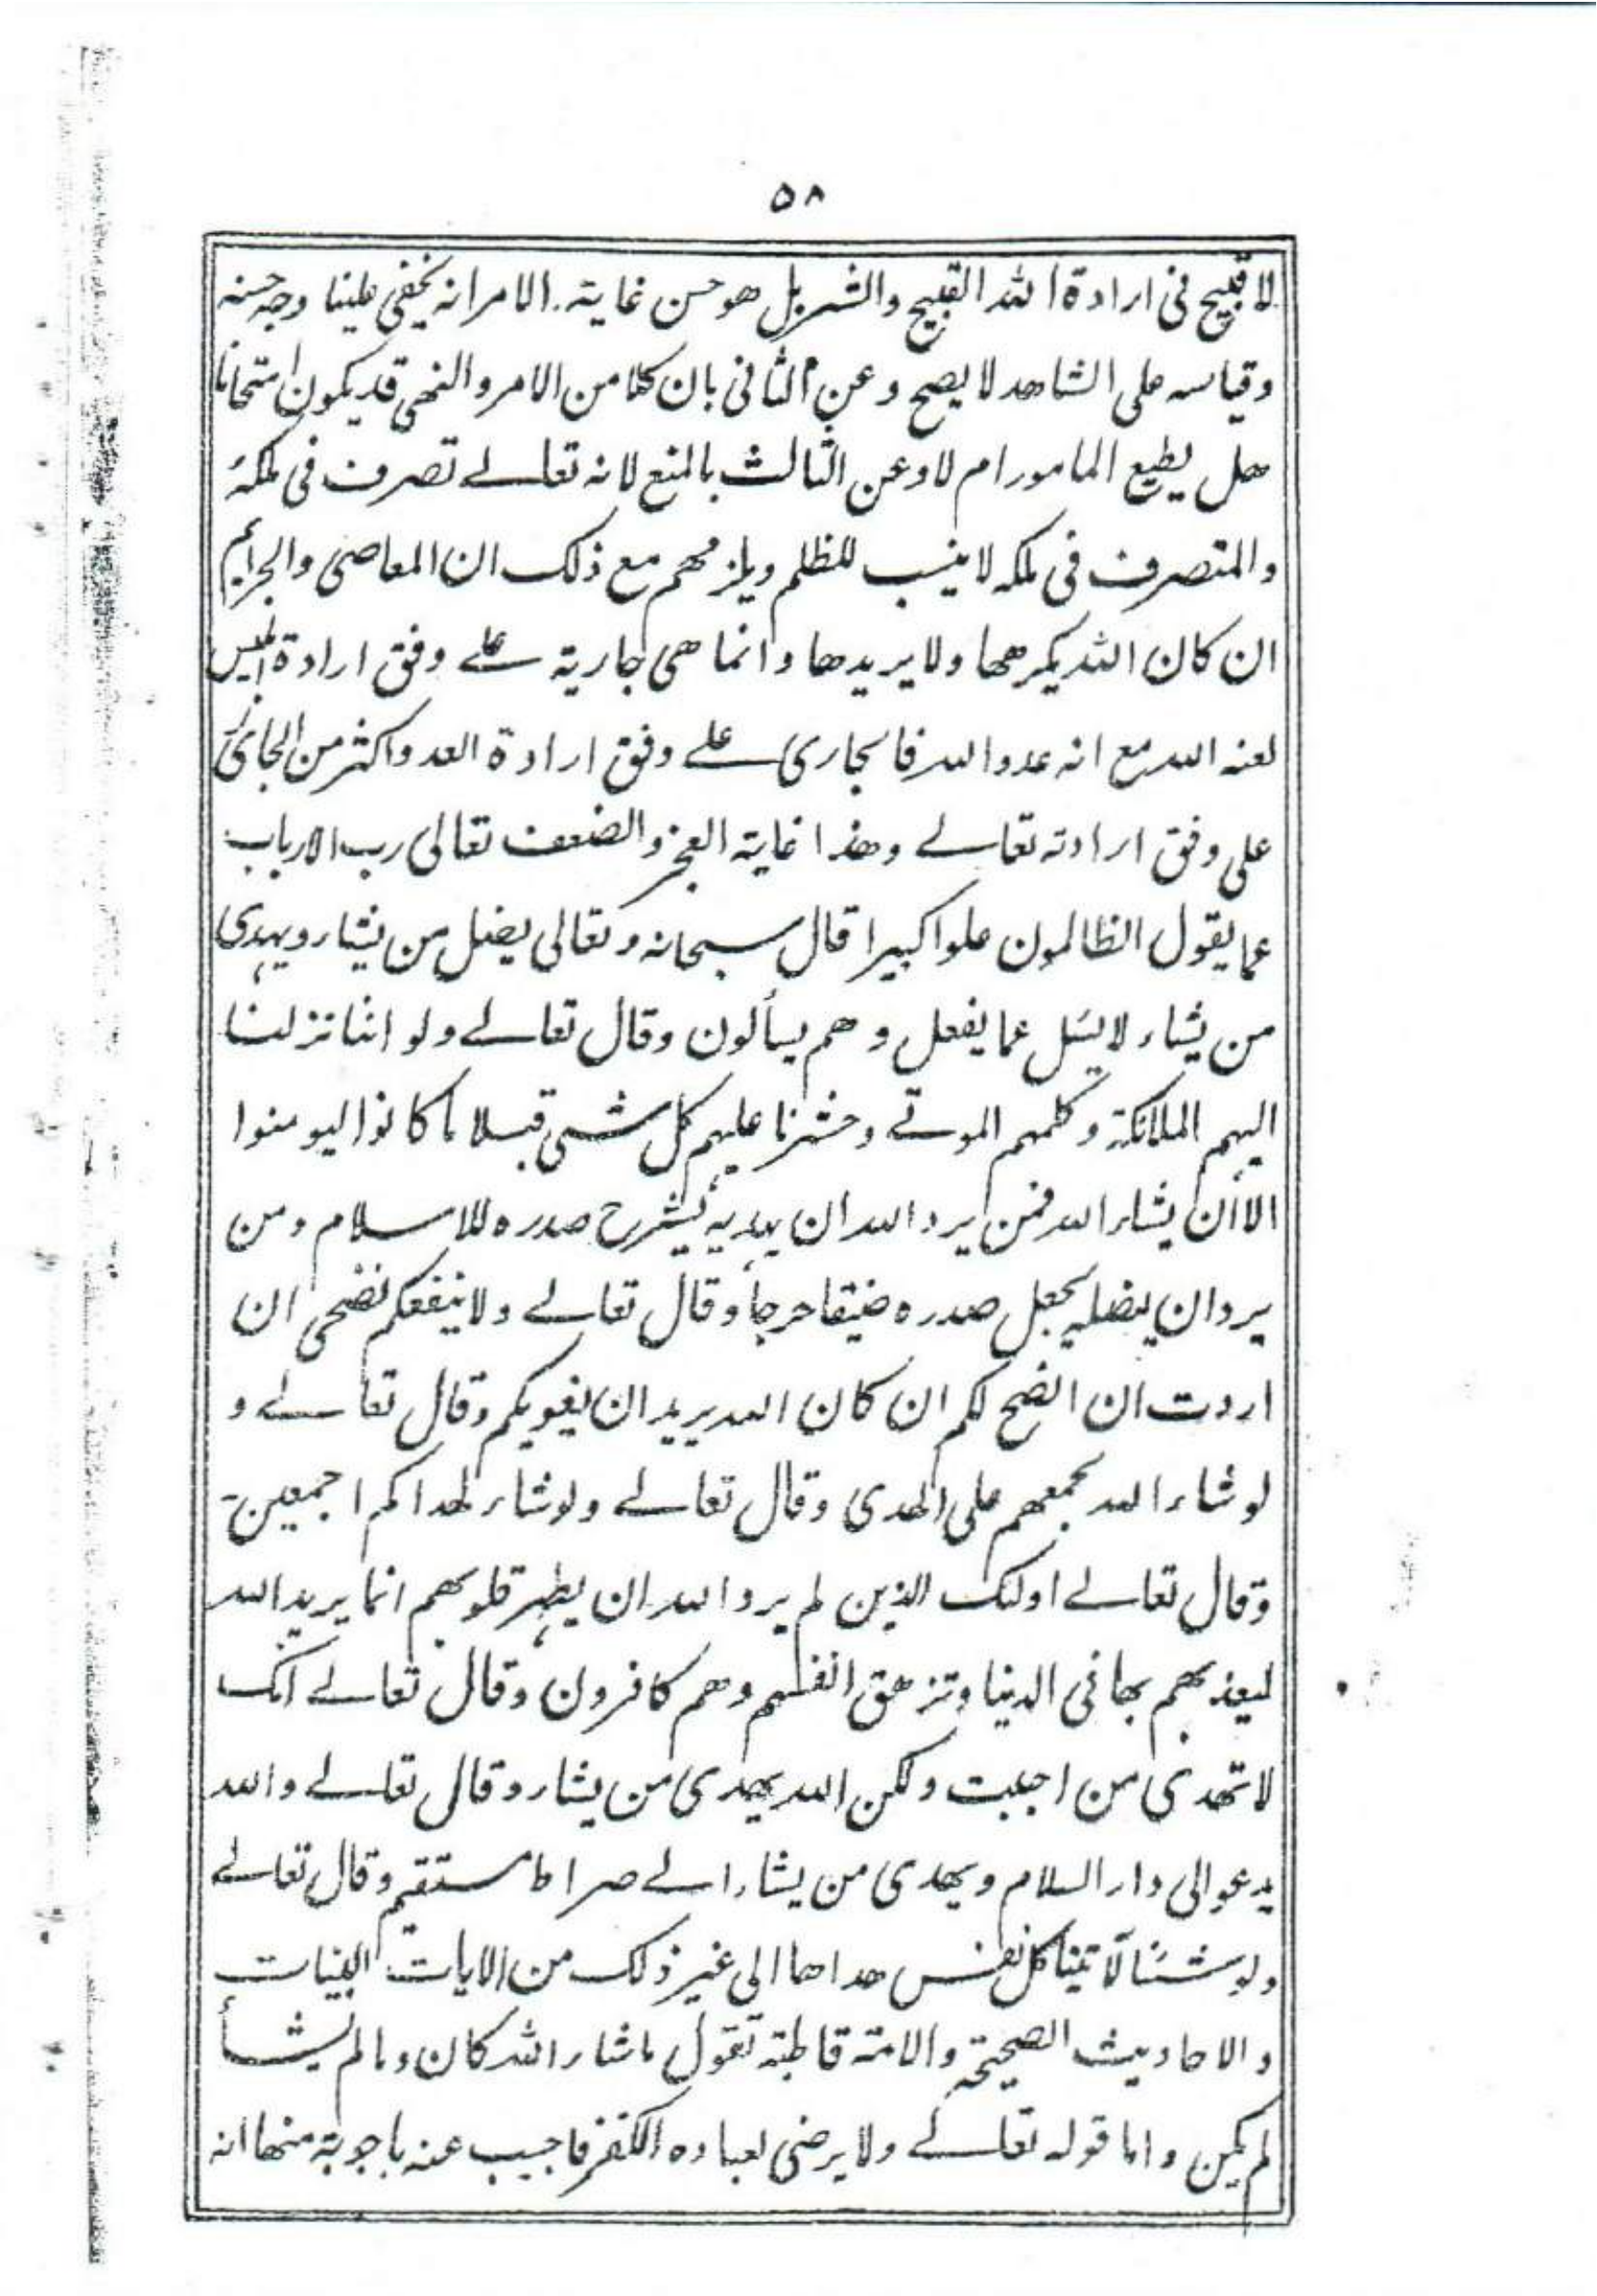 ٥٨
لا قبيح فى ارادة الله القبيح والشر بل هو حسن غاية الامر انه يخفى علينا وجه حسنه
وقياسه على الشاهد لا يصح وعن الثانى بان كلا من الامر والنهى قد يكون امتحانا
هل يطيع المامور ام لا وعن الثالث بالمنع لانه تعالے تصرف فى ملكه
والمتصرف فى ملكه لا ينسب للظلم ويلزمهم مع ذلك ان المعاصى والجرايم
ان كان الله يكرهها ولا يريدها وانما هى جارية علے وفق ارادة ابليس
لعنه الله مع انه عدو الله فالجارى علے وفق ارادة العدو اكثر من الجارى
على وفق ارادته تعالے وهذا غاية العجز والضعف تعالى رب الارباب
عما يقول الظالمون علوا كبيرا قال سبحانه وتعالى يضل من يشاء ويهدى
من يشاء لا يسئل عما يفعل وهم يسألون وقال تعالے ولو اننا نزلنا
اليهم الملائكة وكلمهم الموتے وحشرنا عليهم كل شىء قبلا ما كانوا ليومنوا
الا أن يشاء الله فمن يرد الله ان يهديه يشرح صدره للاسلام ومن
يرد ان يضله يجعل صدره ضيقا حرجا وقال تعالے ولا ينفعكم نصحى ان
اردت ان انصح لكم ان كان الله يريد ان يغويكم وقال تعالے و
لو شاء الله لجمعهم على الهدى وقال تعالے ولو شاء لهداكم اجمعين
وقال تعالے اولئك الذين لم يرد الله ان يطهر قلوبهم انما يريد الله
ليعذبهم بها فى الدنيا وتزهق انفسهم وهم كافرون وقال تعالے انك
لا تهدى من احببت ولكن الله يهدى من يشاء وقال تعالے والله
يدعو الى دار السلام ويهدى من يشاء الے صراط مستقيم وقال تعالے
ولو شئنا لآتينا كل نفس هداها الى غير ذلك من الايات البينات
والاحاديث الصحيحة والامة قاطبة تقول ما شاء الله كان وما لم يشأ
لم يكن واما قوله تعالے ولا يرضى لعباده الكفر فاجيب عنه باجوبة منها انه